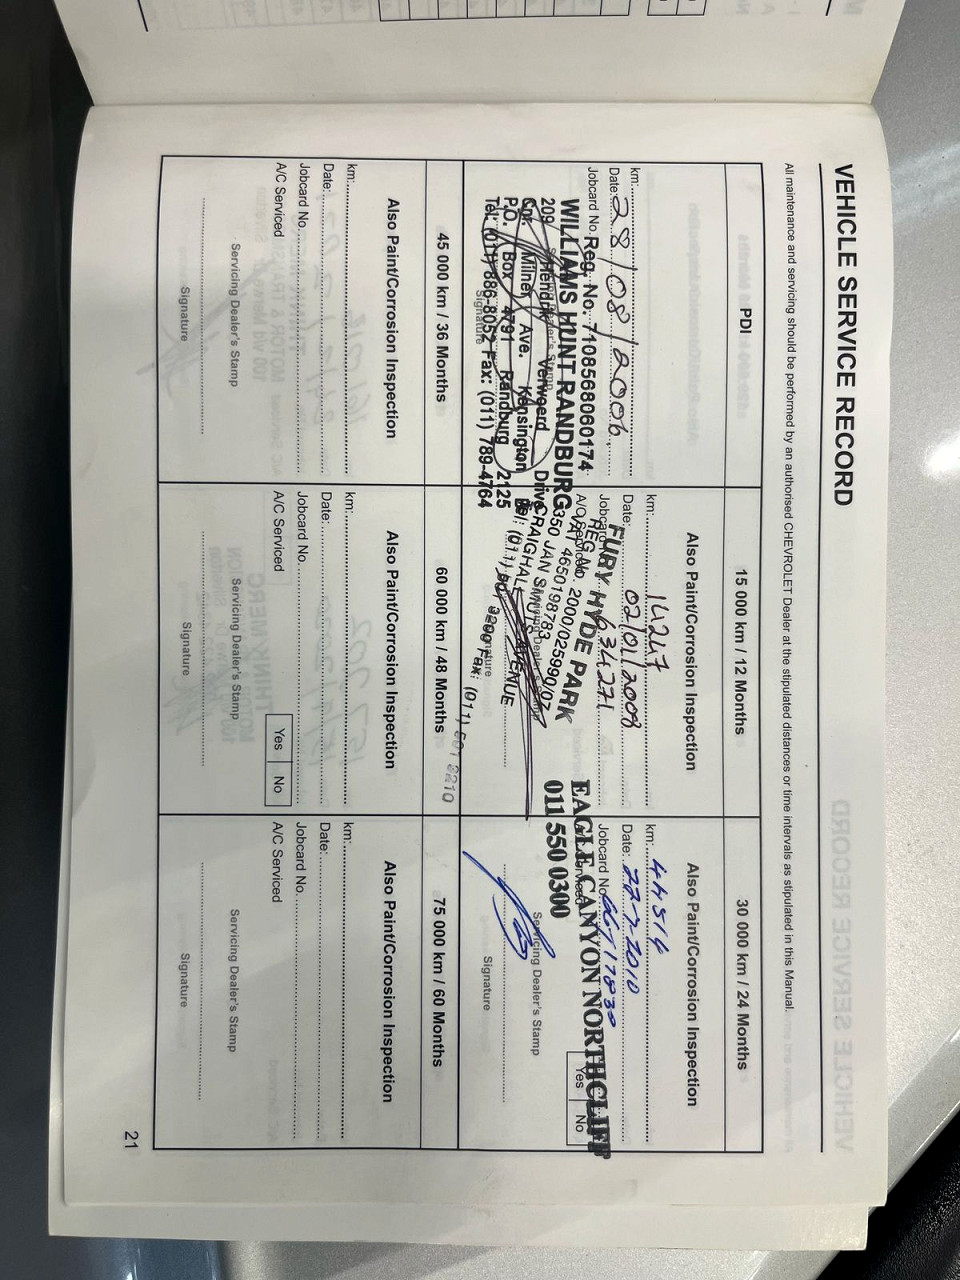 VEHICLE SERVICE RECORD
All maintenance and servicing should be performed by an authorised CHEVROLET Dealer at the stipulated distances or time intervals as stipulated in this Manual.
PDI
km:
Date: 28/08/2006
Jobcard No. Reg. No. 7108568060174
WILLIAMS HUNT RANDBURG
209 Hendrik Verwoerd Drive
Cnr. Milner Ave. Kensington B
P.O. Box 4791 Randburg 2125
Tel: (011) 886-8052 Fax: (011) 789-4764
Servicing Dealer's Stamp
Signature
15 000 km / 12 Months
Also Paint/Corrosion Inspection
km: 14247
Date: 02/01/2008
Jobcard No. 634271
A/C Serviced
FURY HYDE PARK
REG No. 2000/025990/07
VAT 4650198783
350 JAN SMUTS AVENUE
CRAIGHALL
Servicing Dealer's Stamp
Signature
Fax: (011) 501 2210
30 000 km / 24 Months
Also Paint/Corrosion Inspection
km: 44514
Date: 22-7-2010
Jobcard No.
A/C Serviced
Yes No
EAGLE CANYON NORTHCLIFF
011 550 0300
Servicing Dealer's Stamp
Signature
45 000 km / 36 Months
Also Paint/Corrosion Inspection
km:
Date:
Jobcard No.
A/C Serviced
Servicing Dealer's Stamp
Signature
60 000 km / 48 Months
Also Paint/Corrosion Inspection
km:
Date:
Jobcard No.
A/C Serviced
Yes No
Servicing Dealer's Stamp
Signature
75 000 km / 60 Months
Also Paint/Corrosion Inspection
km:
Date:
Jobcard No.
A/C Serviced
Servicing Dealer's Stamp
Signature
21